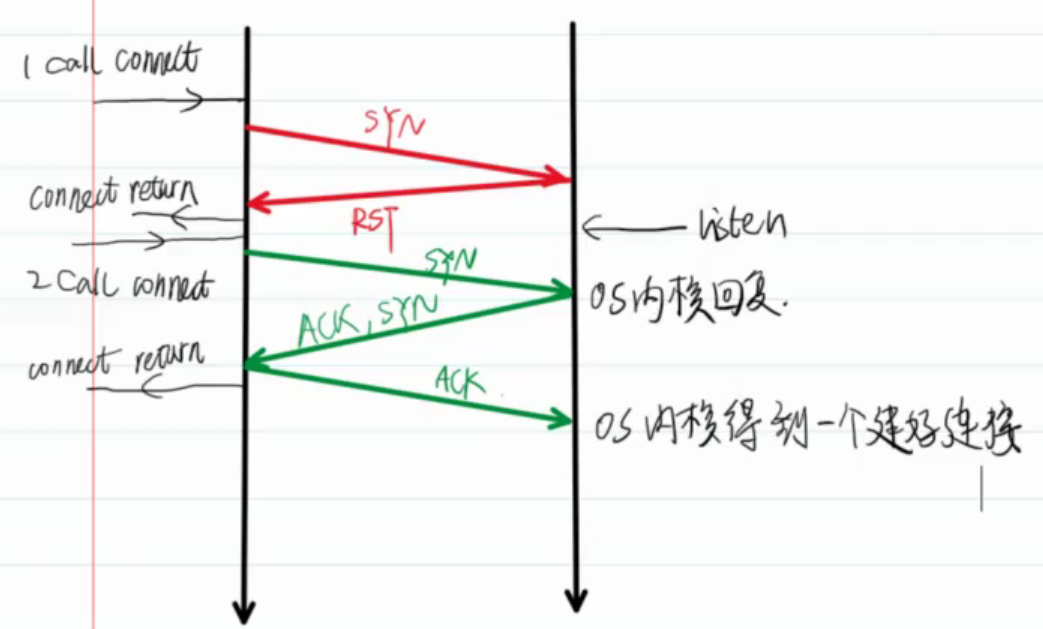 1 call connect
SYN
connect return
RST
listen
2 Call connect
SYN
OS内核回复.
ACK, SYN
connect return
ACK
OS内核得到一个建好连接